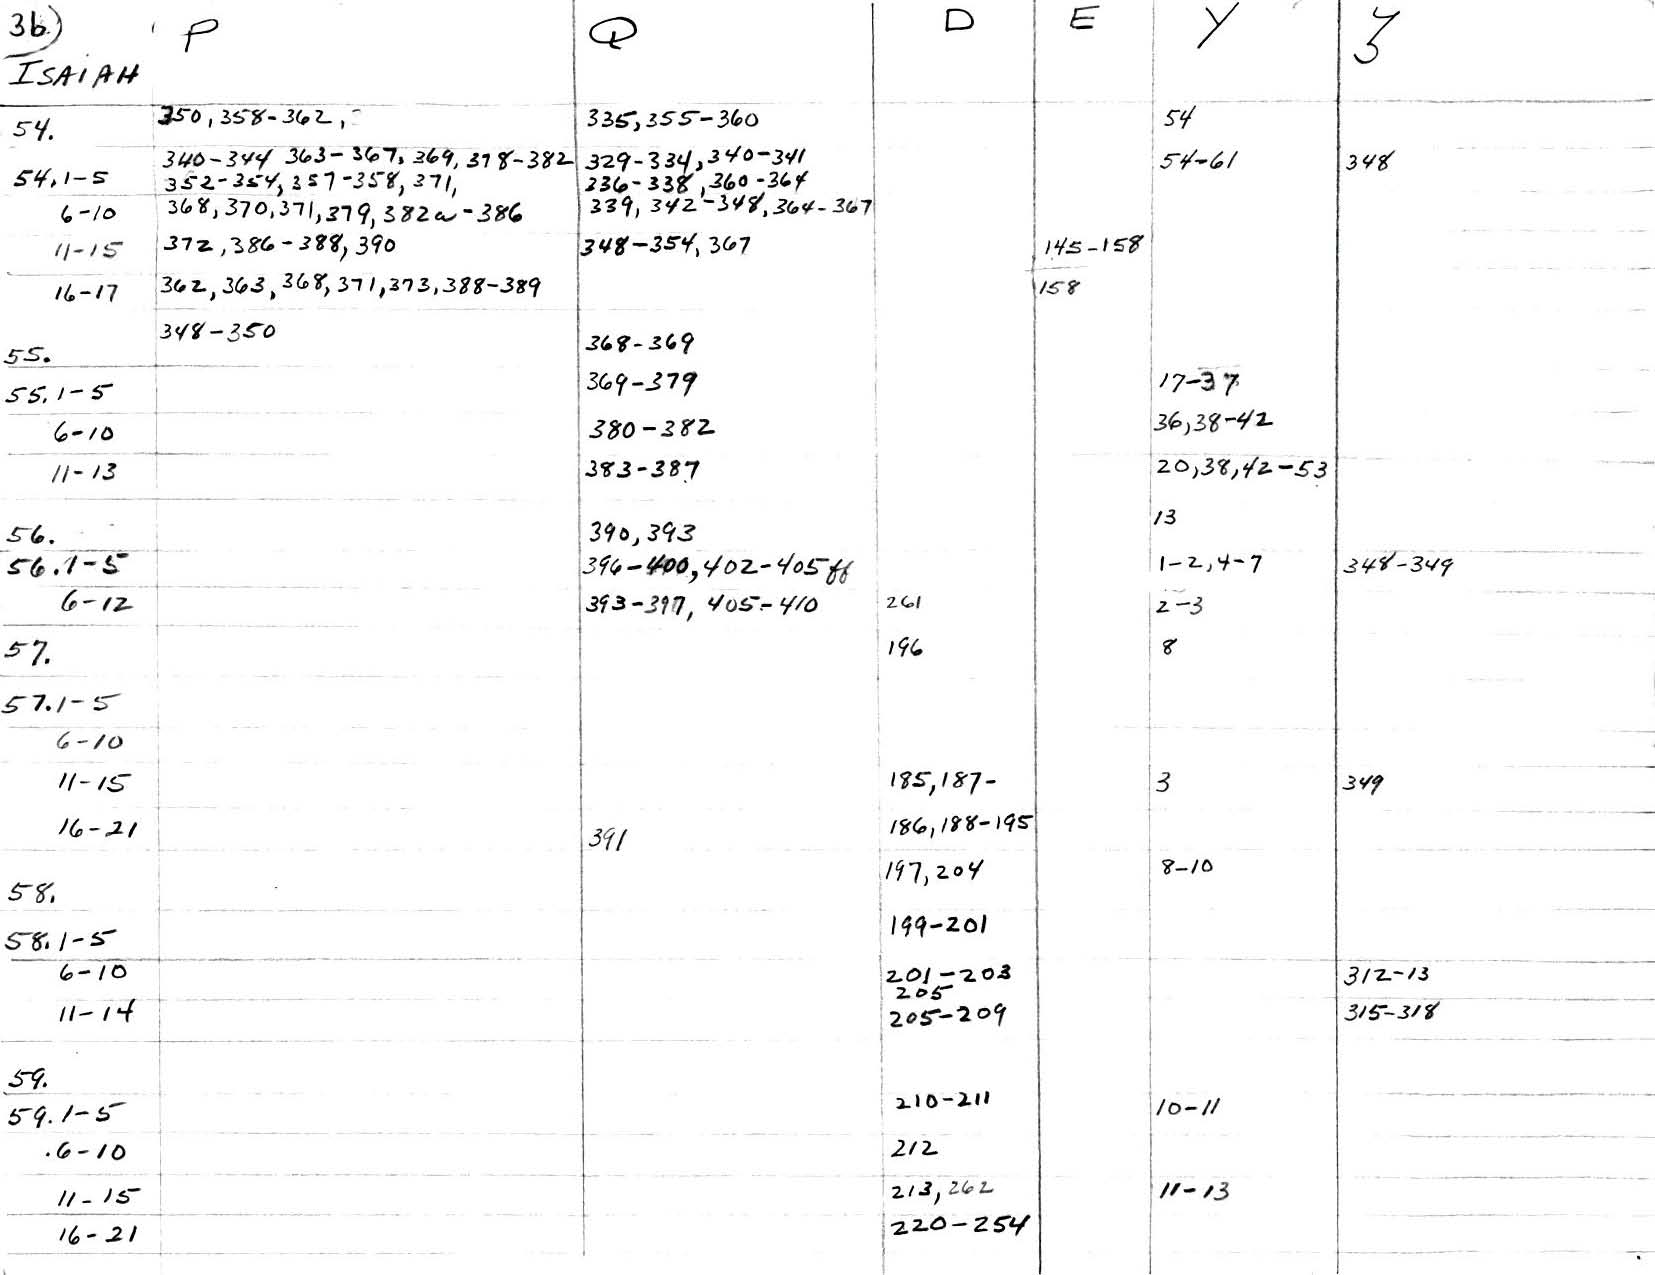 3b) P Q D E Y Z
ISAIAH
54. 350, 358-362, 335, 355-360 54
340-344 363-367, 369, 378-382 329-334, 340-341 54-61 348
54.1-5 352-354, 357-358, 371, 236-338, 360-364
6-10 368, 370, 371, 379, 382a-386 339, 342-348, 364-367
11-15 372, 386-388, 390 348-354, 367 145-158
16-17 362, 363, 368, 371, 373, 388-389 158
348-350
55. 368-369
55.1-5 369-379 17-37
6-10 380-382 36, 38-42
11-13 383-387 20, 38, 42-53
56. 390, 393 13
56.1-5 396-400, 402-405ff 1-2, 4-7 348-349
6-12 393-397, 405-410 261 2-3
57. 196 8
57.1-5
6-10
11-15 185, 187- 3 349
16-21 391 186, 188-195
58. 197, 204 8-10
58.1-5 199-201
6-10 201-203 312-13
205
11-14 205-209 315-318
59.
59.1-5 210-211 10-11
.6-10 212
11-15 213, 262 11-13
16-21 220-254